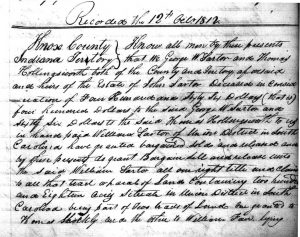 Recorded the 12th Octo 1812
Knox County } Know all men by these presents
Indiana Territory } that We George W Sartor and Thomas
Hollingsworth both of the County and Teritory aforesaid
and heirs of the Estate of John Sartor diceased in Consid
eration of Four Hundred and Fifty Six Dollars (that is)
four Hundred Dollars to the said George W Sartor and
fifty six Dollars to the said Thomas Hollingsworth to us
in hand paid William Sartor of Union District in South
Carolina have granted bargained sold and released and
by these presents do grant Bargain Sell and release unto
the said William Sartor all our right title and Claim
to all that tract or parcel of Land Containing two hundred
and Eighteen Acres Situate in Union District in South
Carolina being part of two tracts of Land one granted to
Thomas Shockly and the other to William Farr lying